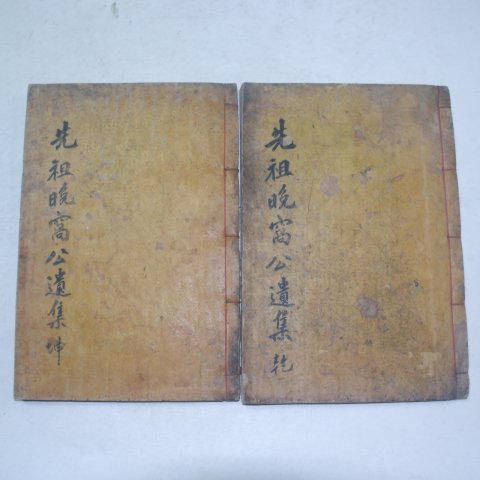 先祖晚窩公遺集 乾
先祖晚窩公遺集 坤